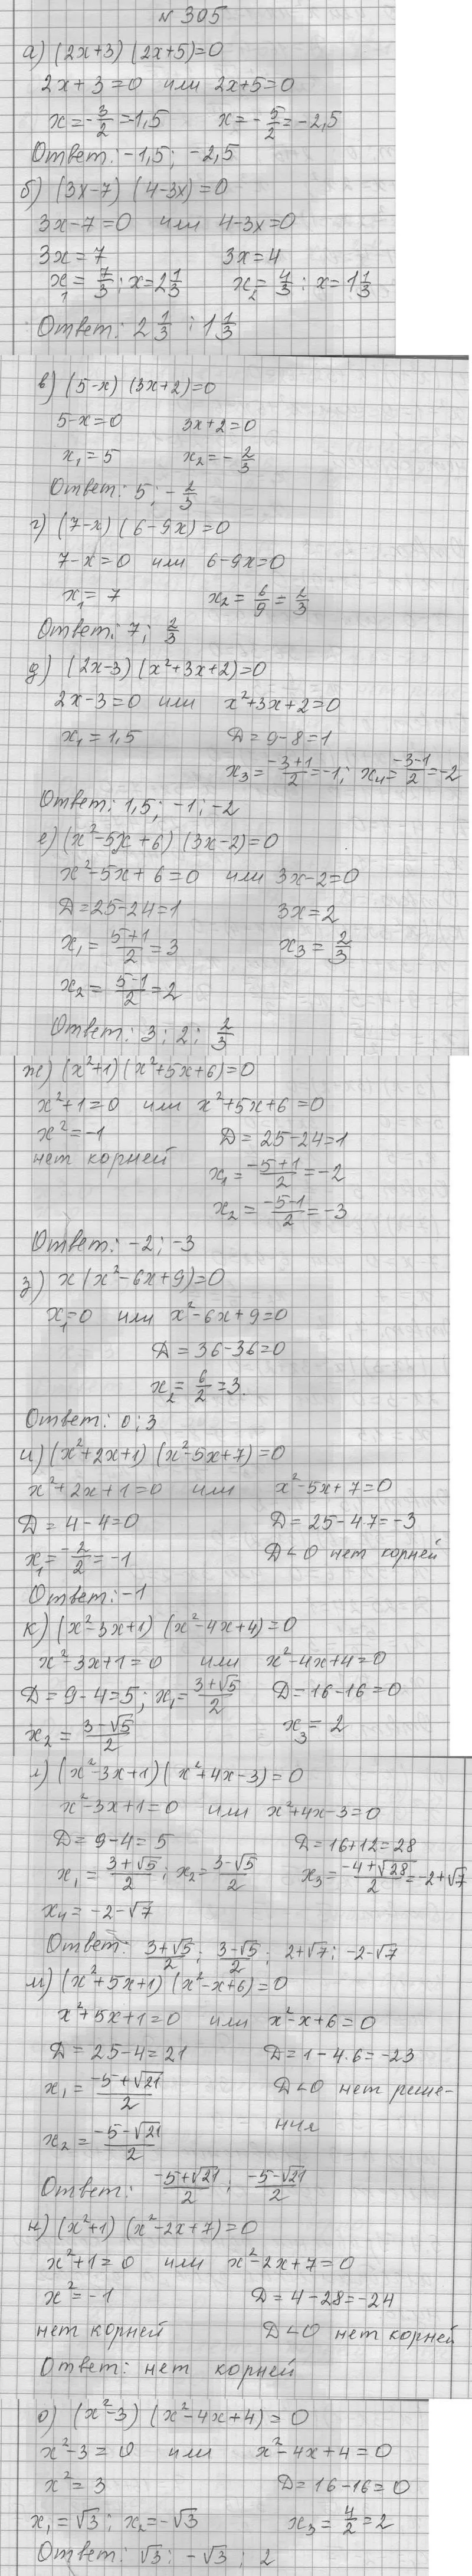 № 305
а) (2x+3) (2x+5)=0
2x+3=0 или 2x+5=0
x=-3/2=-1,5 x=-5/2=-2,5
Ответ: -1,5; -2,5
б) (3x-7) (4-3x)=0
3x-7=0 или 4-3x=0
3x=7 3x=4
x₁=7/3; x=2 1/3 x₂=4/3; x=1 1/3
Ответ: 2 1/3; 1 1/3
в) (5-x) (3x+2)=0
5-x=0 3x+2=0
x₁=5 x₂=-2/3
Ответ: 5; -2/3
г) (7-x) (6-9x)=0
7-x=0 или 6-9x=0
x₁=7 x₂=6/9=2/3
Ответ: 7; 2/3
д) (2x-3) (x²+3x+2)=0
2x-3=0 или x²+3x+2=0
x₁=1,5 D=9-8=1
x₃=(-3+1)/2=-1; x₄=(-3-1)/2=-2
Ответ: 1,5; -1; -2
е) (x²-5x+6) (3x-2)=0
x²-5x+6=0 или 3x-2=0
D=25-24=1 3x=2
x₁=(5+1)/2=3 x₃=2/3
x₂=(5-1)/2=2
Ответ: 3; 2; 2/3
ж) (x²+1) (x²+5x+6)=0
x²+1=0 или x²+5x+6=0
x²=-1 D=25-24=1
нет корней x₁=(-5+1)/2=-2
x₂=(-5-1)/2=-3
Ответ: -2; -3
з) x(x²-6x+9)=0
x₁=0 или x²-6x+9=0
D=36-36=0
x₂=6/2=3.
Ответ: 0; 3
и) (x²+2x+1) (x²-5x+7)=0
x²+2x+1=0 или x²-5x+7=0
D=4-4=0 D=25-47=-3
x₁=-2/2=-1 D<0 нет корней
Ответ: -1
к) (x²-3x+1) (x²-4x+4)=0
x²-3x+1=0 или x²-4x+4=0
D=9-4=5; x₁=(3+√5)/2 D=16-16=0
x₂=(3-√5)/2 x₃=2
л) (x²-3x+1) (x²+4x-3)=0
x²-3x+1=0 или x²+4x-3=0
D=9-4=5 D=16+12=28
x₁=(3+√5)/2; x₂=(3-√5)/2 x₃=(-4+√28)/2=-2+√7
x₄=-2-√7
Ответ: (3+√5)/2; (3-√5)/2; 2+√7; -2-√7
м) (x²+5x+1) (x²-x+6)=0
x²+5x+1=0 или x²-x+6=0
D=25-4=21 D=1-4.6=-23
x₁=(-5+√21)/2 D<0 нет реше-
x₂=(-5-√21)/2 ния
Ответ: (-5+√21)/2; (-5-√21)/2
н) (x²+1) (x²-2x+7)=0
x²+1=0 или x²-2x+7=0
x²=-1 D=4-28=-24
нет корней D<0 нет корней
Ответ: нет корней
о) (x²-3) (x²-4x+4)=0
x²-3=0 или x²-4x+4=0
x²=3 D=16-16=0
x₁=√3; x₂=-√3 x₃=4/2=2
Ответ: √3; -√3; 2